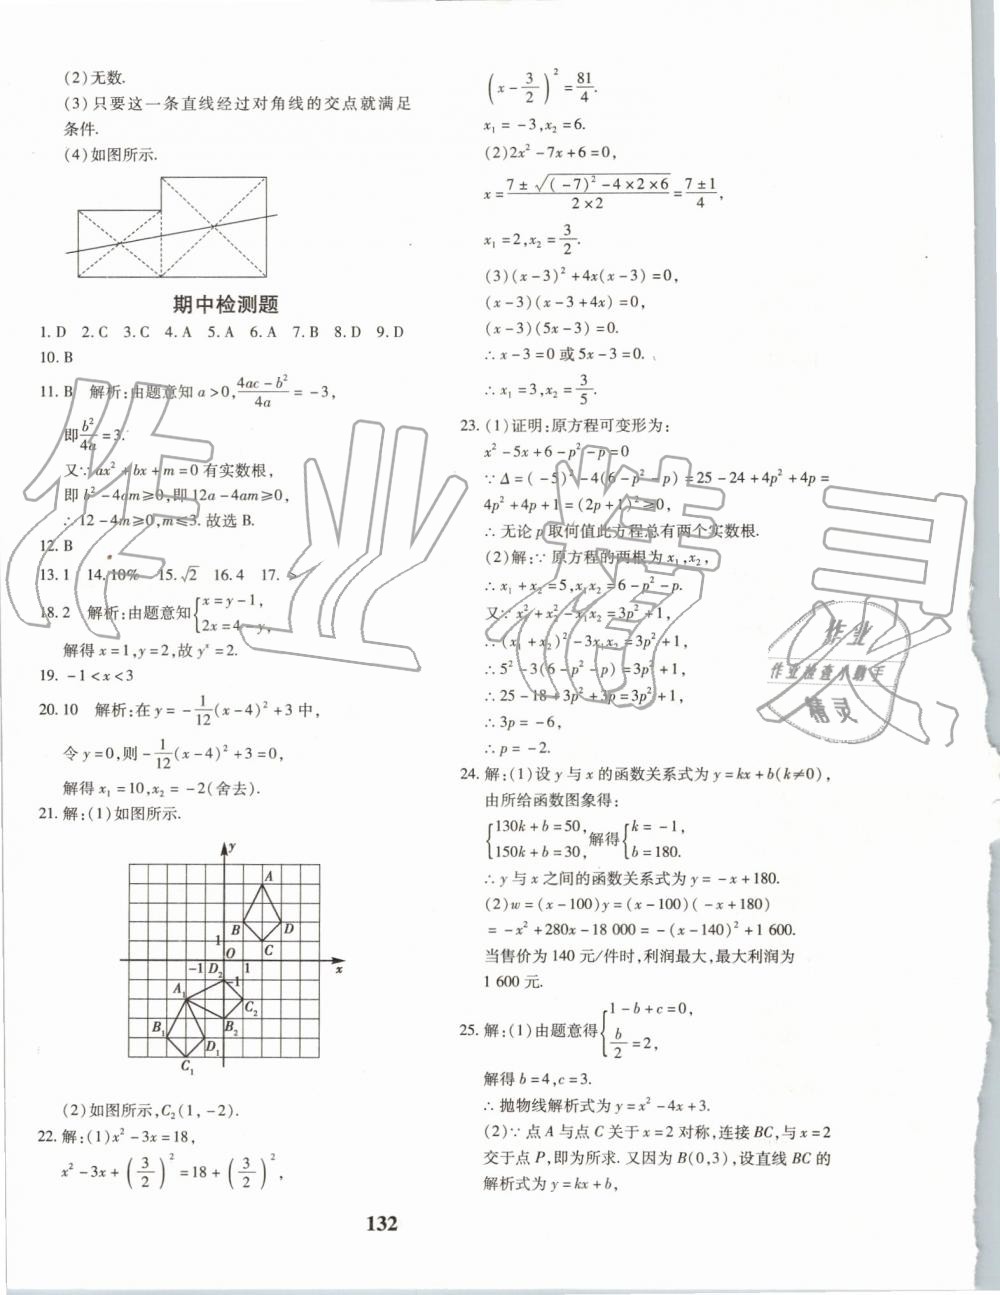 (2)无数.
(3)只要这一条直线经过对角线的交点就满足
条件.
(4)如图所示.
期中检测题
1. D 2. C 3. C 4. A 5. A 6. A 7. B 8. D 9. D
10. B
11. B 解析:由题意知 a>0,(4ac-b²)/(4a) = -3,
即 b²/(4a) = 3.
又∵ ax²+bx+m=0 有实数根,
即 b²-4am≥0,即 12a-4am≥0,
∴ 12-4m≥0,m≤3. 故选 B.
12. B
13. 1 14. 10% 15. √2 16. 4 17.
18. 2 解析:由题意知{x=y-1, 2x=4-y,
解得 x=1,y=2,故 yˣ=2.
19. -1<x<3
20. 10 解析:在 y=-1/12(x-4)²+3 中,
令 y=0,则 -1/12(x-4)²+3=0,
解得 x₁=10,x₂=-2(舍去).
21. 解:(1)如图所示.
y
A
B D
1
O C
-1 D₂ 1 x
-1
A₁ C₂
B₁ B₂
D₁
C₁
(2)如图所示,C₂(1,-2).
22. 解:(1)x²-3x=18,
x²-3x+(3/2)²=18+(3/2)²,
(x-3/2)²=81/4.
x₁=-3,x₂=6.
(2)2x²-7x+6=0,
x=(7±√((-7)²-4×2×6))/(2×2)=(7±1)/4,
x₁=2,x₂=3/2.
(3)(x-3)²+4x(x-3)=0,
(x-3)(x-3+4x)=0,
(x-3)(5x-3)=0.
∴ x-3=0 或 5x-3=0.
∴ x₁=3,x₂=3/5.
23. (1)证明:原方程可变形为:
x²-5x+6-p²-p=0
∵ Δ=(-5)²-4(6-p²-p)=25-24+4p²+4p=
4p²+4p+1=(2p+1)²≥0,
∴ 无论 p 取何值此方程总有两个实数根.
(2)解:∵ 原方程的两根为 x₁,x₂,
∴ x₁+x₂=5,x₁x₂=6-p²-p.
又∵ x₁²+x₂²-x₁x₂=3p²+1,
∴ (x₁+x₂)²-3x₁x₂=3p²+1,
∴ 5²-3(6-p²-p)=3p²+1,
∴ 25-18+3p²+3p=3p²+1,
∴ 3p=-6,
∴ p=-2.
24. 解:(1)设 y 与 x 的函数关系式为 y=kx+b(k≠0),
由所给函数图象得:
{130k+b=50, 150k+b=30, 解得{k=-1, b=180.
∴ y 与 x 之间的函数关系式为 y=-x+180.
(2)w=(x-100)y=(x-100)(-x+180)
=-x²+280x-18 000=-(x-140)²+1 600.
当售价为 140 元/件时,利润最大,最大利润为
1 600 元.
25. 解:(1)由题意得{1-b+c=0, b/2=2,
解得 b=4,c=3.
∴ 抛物线解析式为 y=x²-4x+3.
(2)∵ 点 A 与点 C 关于 x=2 对称,连接 BC,与 x=2
交于点 P,即为所求. 又因为 B(0,3),设直线 BC 的
解析式为 y=kx+b,
132
作业精灵
作业
作业检查小助手
精灵